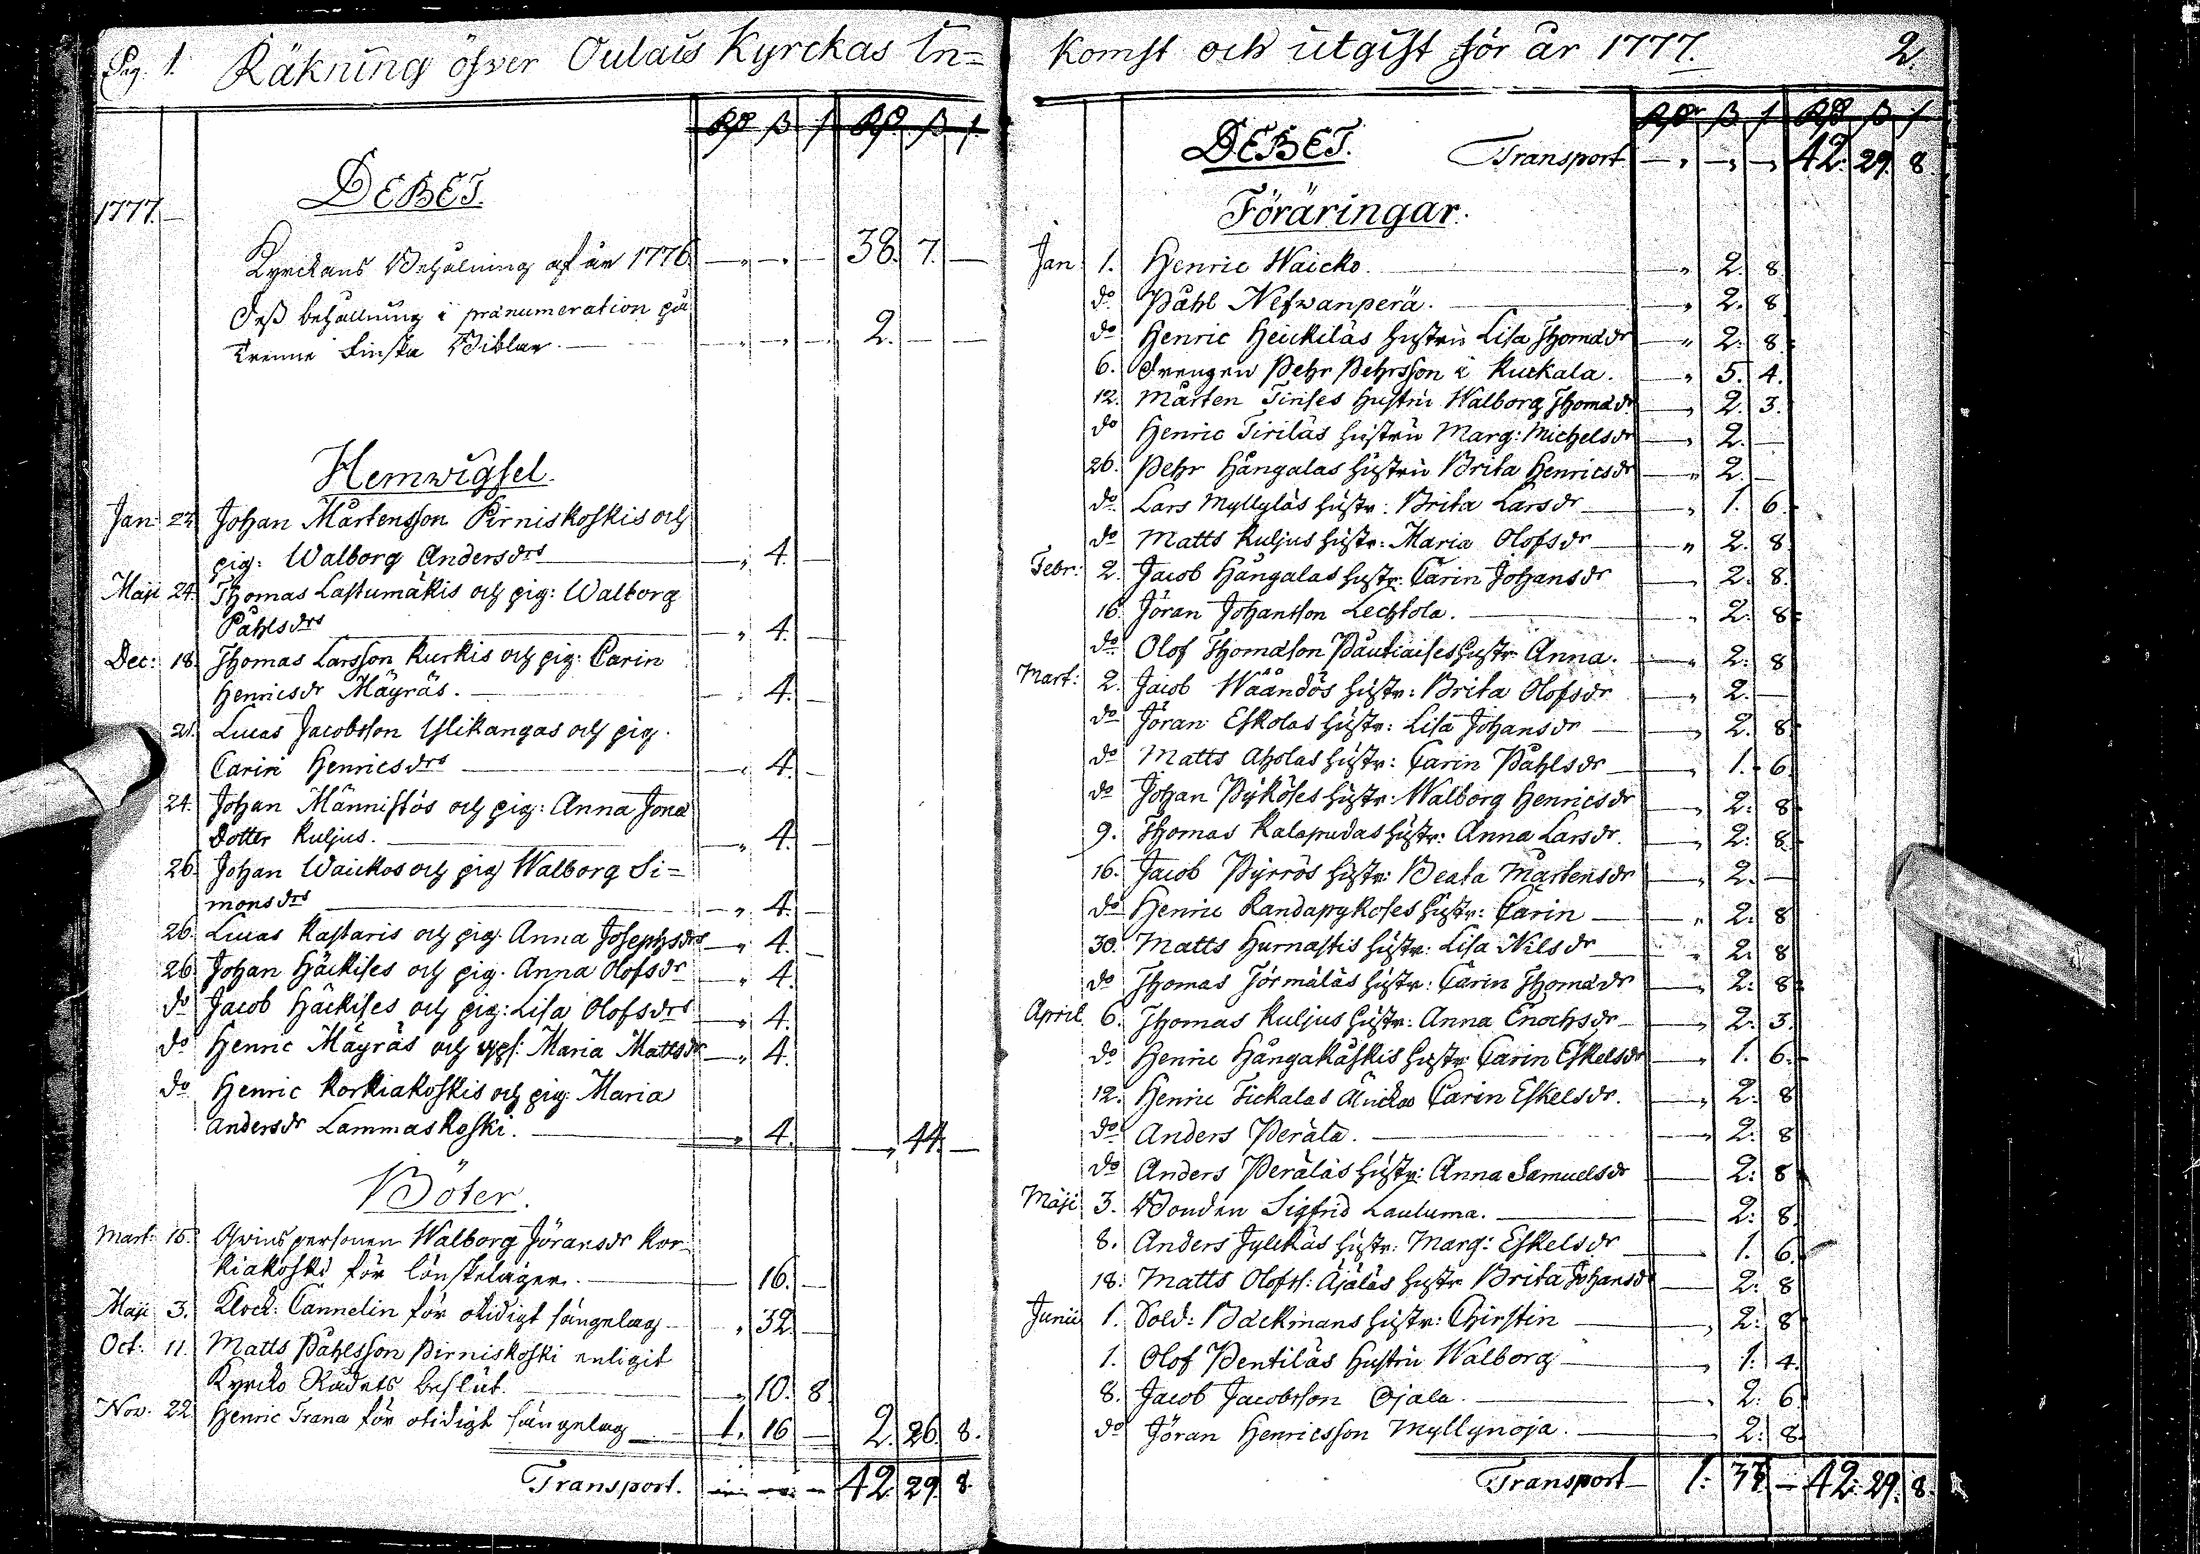 Pag. 1. Räkning öfver Oulais Kyrckas In=
Rd ß f Rd ß f
1777.
DEBET.
Kyrckans Behålning af år 1776 38. 7. —
Dess behållning i pränumeration på
Trenne Finska Biblar. 2. — —
Hemwigsel.
Jan: 23. Johan Mårtensson Pirniskoskis och
pig: Walborg Andersdrs 4. —
Maji 24. Thomas Lastumäkis och pig: Walborg
Påhlsdrs 4. —
Dec: 18. Thomas Larsson Kurkis och pig: Carin
Henricsdr Mäyräs. 4. —
21. Lucas Jacobsson Ylikangas och pig.
Carin Henricsdrs 4. —
24. Johan Männistös och pig: Anna Jona
dotter Kuljus. 4. —
26. Johan Waickos och pig Walborg Si=
monsdrs 4. —
26. Lucas Kastaris och pig. Anna Josephsdrs 4. —
26. Johan Häckises och pig. Anna Olofsdr 4.
do Jacob Häckises och pig: Lisa Olofsdrs 4.
do Henric Mäyräs och Maria Mattsdr 4.
do Henric Korkiakoskis och pig: Maria
Andersdr Lammaskoski. 4. — 44. —
Böter.
Mart: 15. Qvinspersonen Walborg Jöransdr Kor-
kiakoski för lönskeläger. 16. —
Maji 3. Klock: Cannelin för otidigt sängelag 32. —
Oct: 11. Matts Påhlsson Pirniskoski enligit
Kyrcko Rådets beslut. 10. 8.
Nov. 22. Henric Trana för otidigt sängelag 1. 16 — 2. 26. 8.
Transport. 42. 29. 8.
komst och utgift för år 1777. 2.
Rdr ß f Rd ß f
DEBET. Transport 42. 29. 8.
Föräringar.
Jan: 1. Henric Waicko. 2. 8.
do Påhl Nefwanperä. 2. 8
do Henric Heickiläs hustru Lisa Thomædr 2. 8.
6. Drengen Pehr Pehrsson i Kuckala. 5. 4.
12. Mårten Tirises hustru Walborg Thomædr 2. 3.
do Henric Tiriläs hustru Marg: Michelsdr 2. —
26. Pehr Hångalas hustru Brita Henricsdr 2. —
do Lars Myllyläs hustr: Brita Larsdr 1. 6.
do Matts Kuljus hustr: Maria Olofsdr 2. 8.
Febr: 2. Jacob Hångalas hustr: Carin Johansdr 2. 8.
16. Jöran Johansson Lechtola. 2. 8.
do Olof Thomæson Pautiaises hustr Anna. 2. 8
Mart: 2. Jacob Wäändös hustr: Brita Olofsdr 2. —
do Jöran Eskolas hustr: Lisa Johansdr 2. 8.
do Matts Aholas hustr: Carin Påhlsdr 1. 6.
do Johan Pyköses hustr: Walborg Henricsdr 2. 8.
9. Thomas Kalapudas hustr: Anna Larsdr. 2. 8.
16. Jacob Pyrrös hustr: Beata Mårtensdr 2. —
do Henric Randapykoses hustr: Carin 2. 8
30. Matts Hurnastis hustr: Lisa Nilsdr 2. 8
do Thomas Törmäläs hustr: Carin Thomædr 2. 8.
April 6. Thomas Kuljus hustr: Anna Enochsdr 2. 3.
do Henric Hångakåskis hustr Carin Eskelsdr 1. 6.
12. Henric Tickalas Änckas Carin Eskelsdr. 2. 8
do Anders Peräla. 2. 8
do Anders Peräläs hustr: Anna Samuelsdr 2. 8.
Maji 3. Bonden Sigfrid Lauluma. 2. 8.
8. Anders Jylckäs hustr: Marg: Eskelsdr 1. 6.
18. Matts Olofss: Äjäläs hustr Brita Johansdr 2. 8
Junii 1. Sold: Bäckmans hustr: Chirstin 2. 8
1. Olof Pentiläs hustru Walborg 1. 4.
8. Jacob Jacobsson Ojala. 2. 6.
do Jöran Henricsson Myllynoja. 2. 8.
Transport 1. 33. — 42. 29. 8.